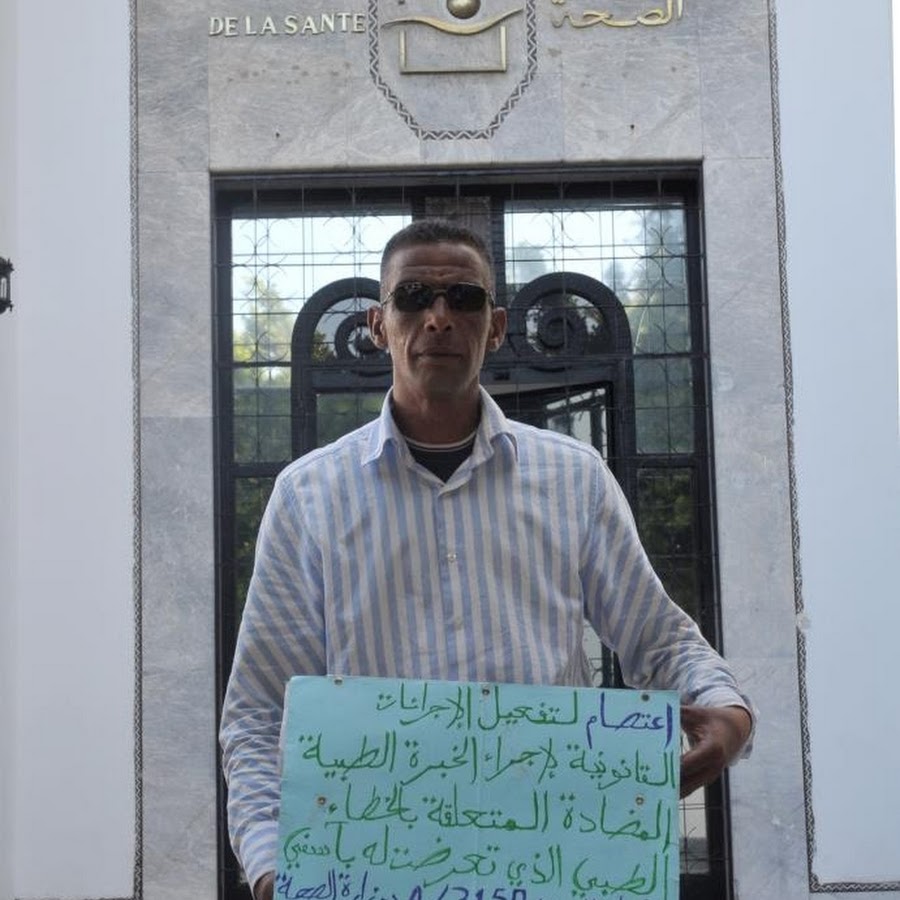 DE LA SANTE
الصحة
إعتصام لتفعيل الإجراءات
القانونية لإجراء الخبرة الطبية
المضادة المتعلقة بالخطاء
الطبي الذي تعرضت له بآسفي
وزارة الصحة